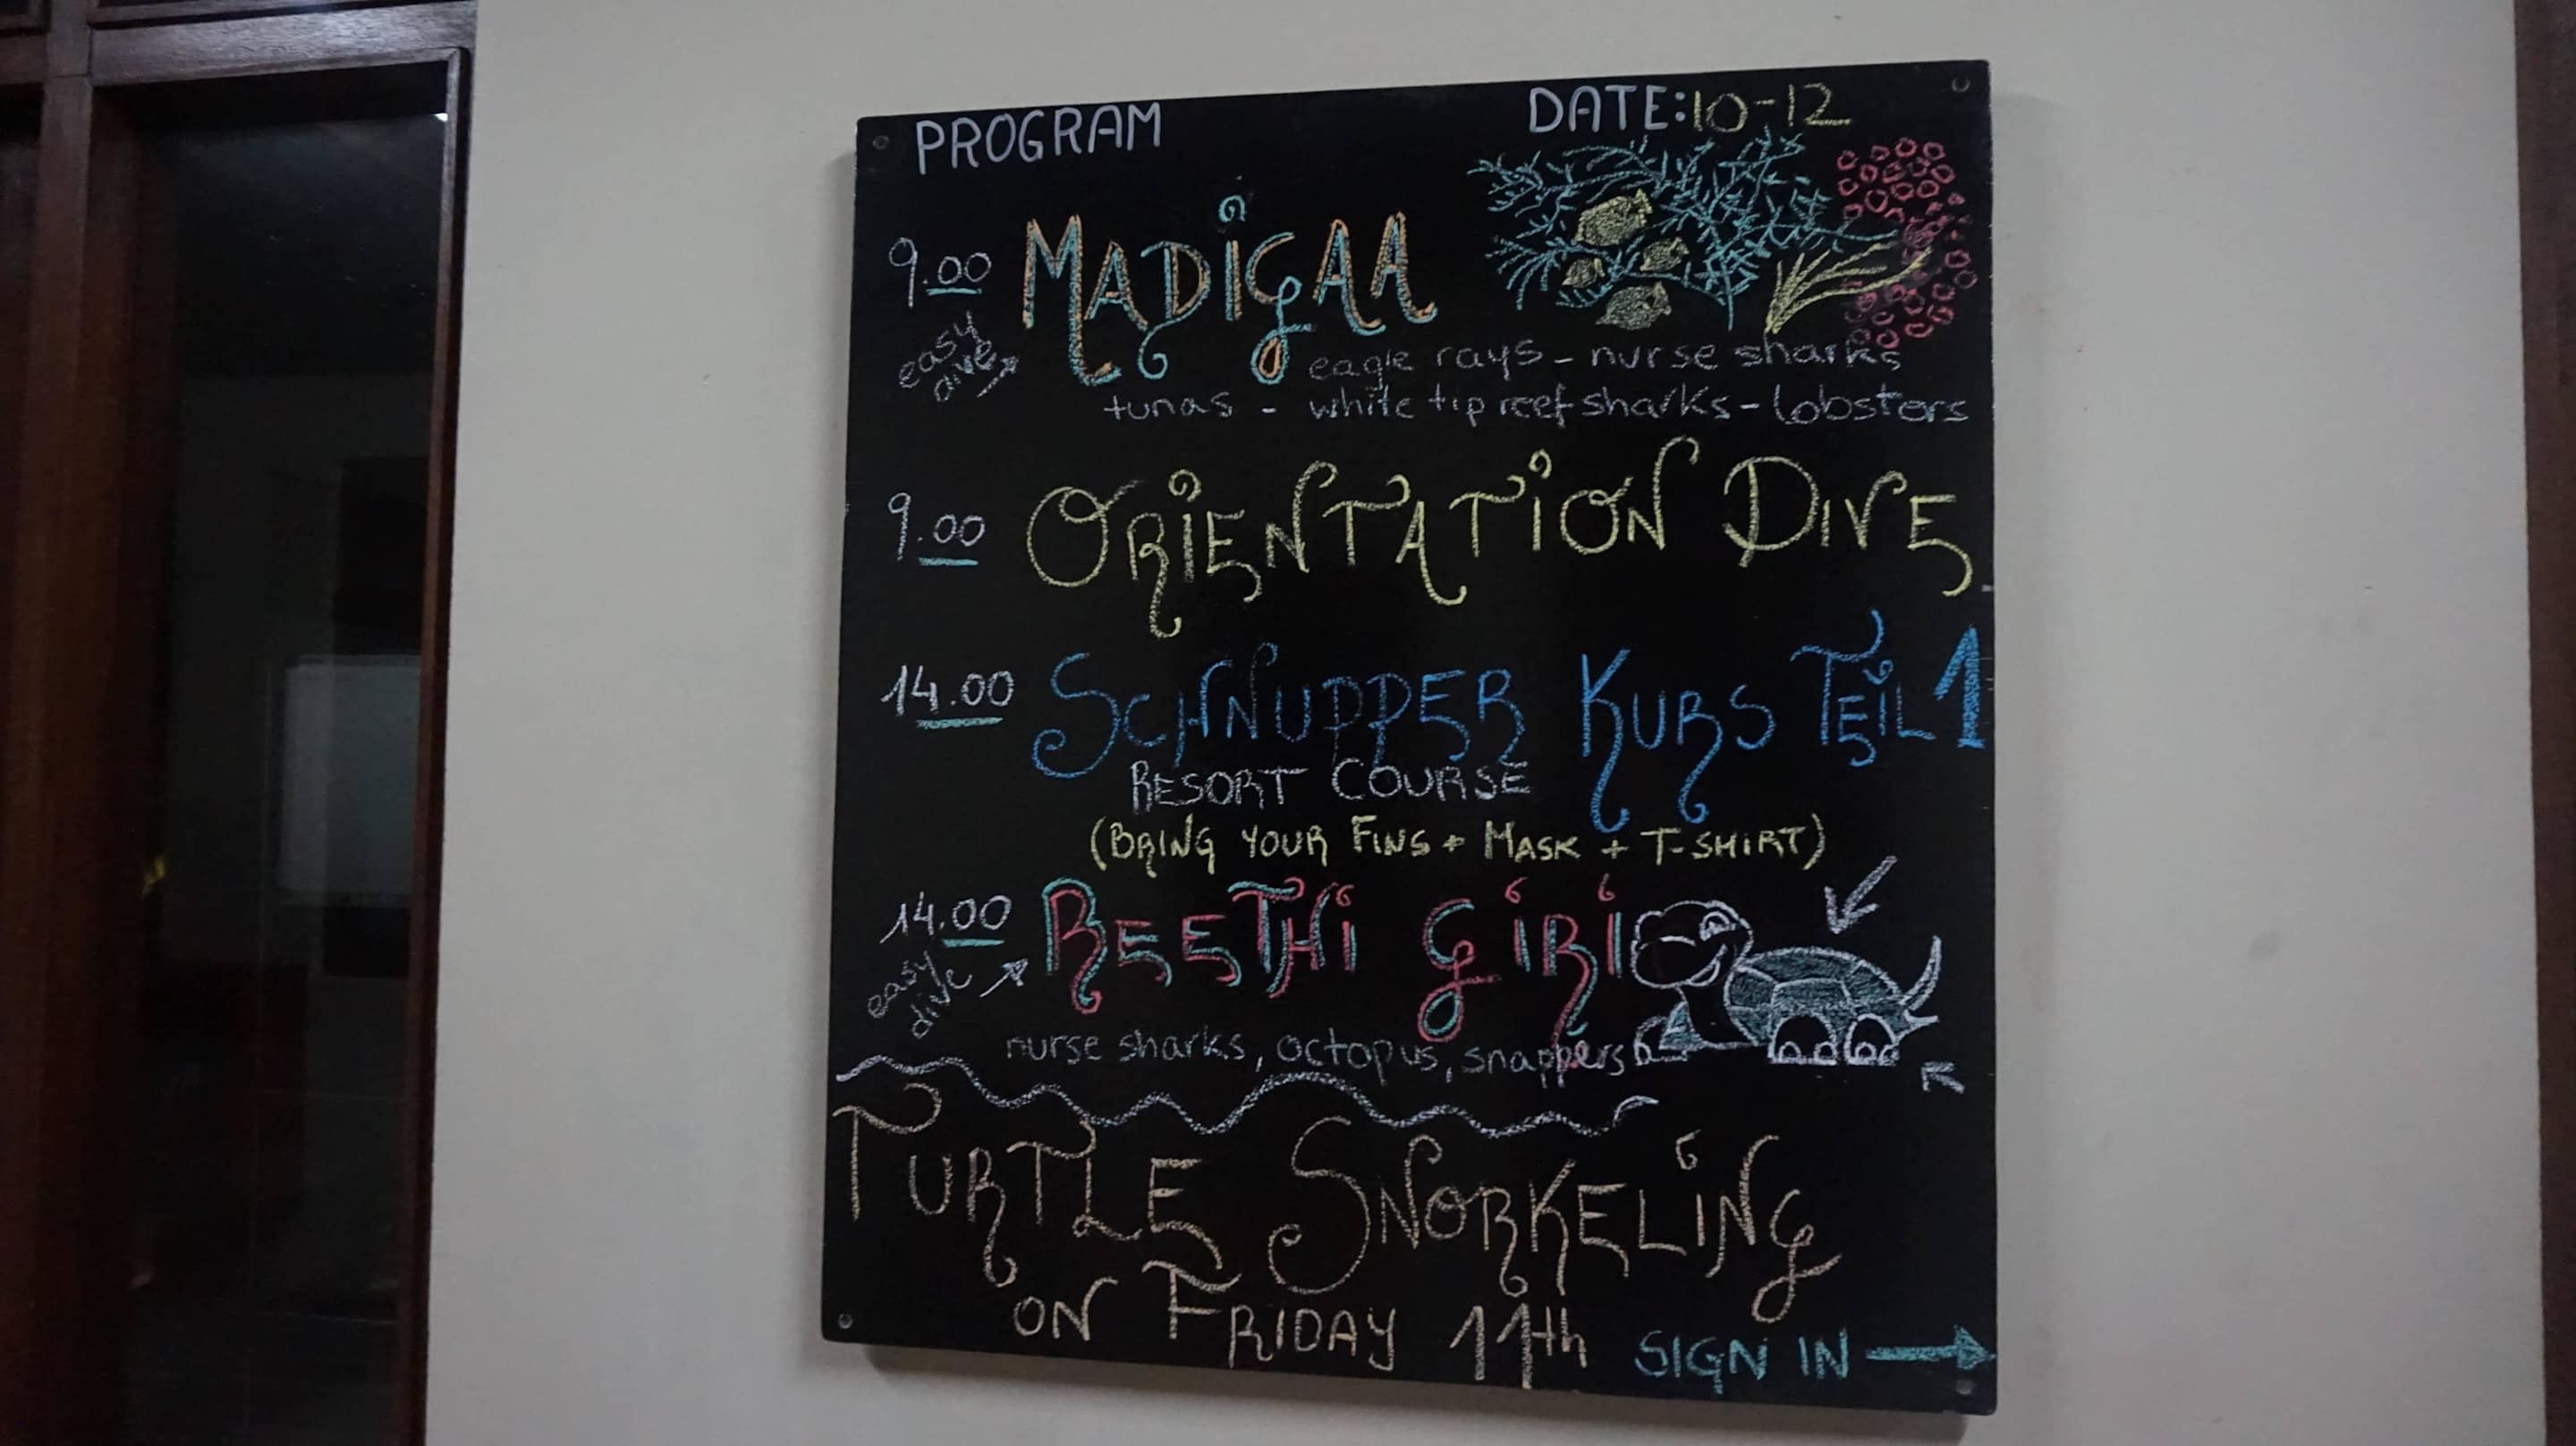 PROGRAM DATE: 10-12
9.00 MADIGAA
easy dive
eagle rays - nurse sharks
tunas - white tip reef sharks - lobsters
9.00 ORIENTATION DIVE
14.00 SCHNUPPER KURS TEIL 1
RESORT COURSE
(BRING YOUR FINS + MASK + T-SHIRT)
14.00 REETHI GIRI
easy dive
nurse sharks, octopus, snappers
TURTLE SNORKELING
ON FRIDAY 11th
SIGN IN